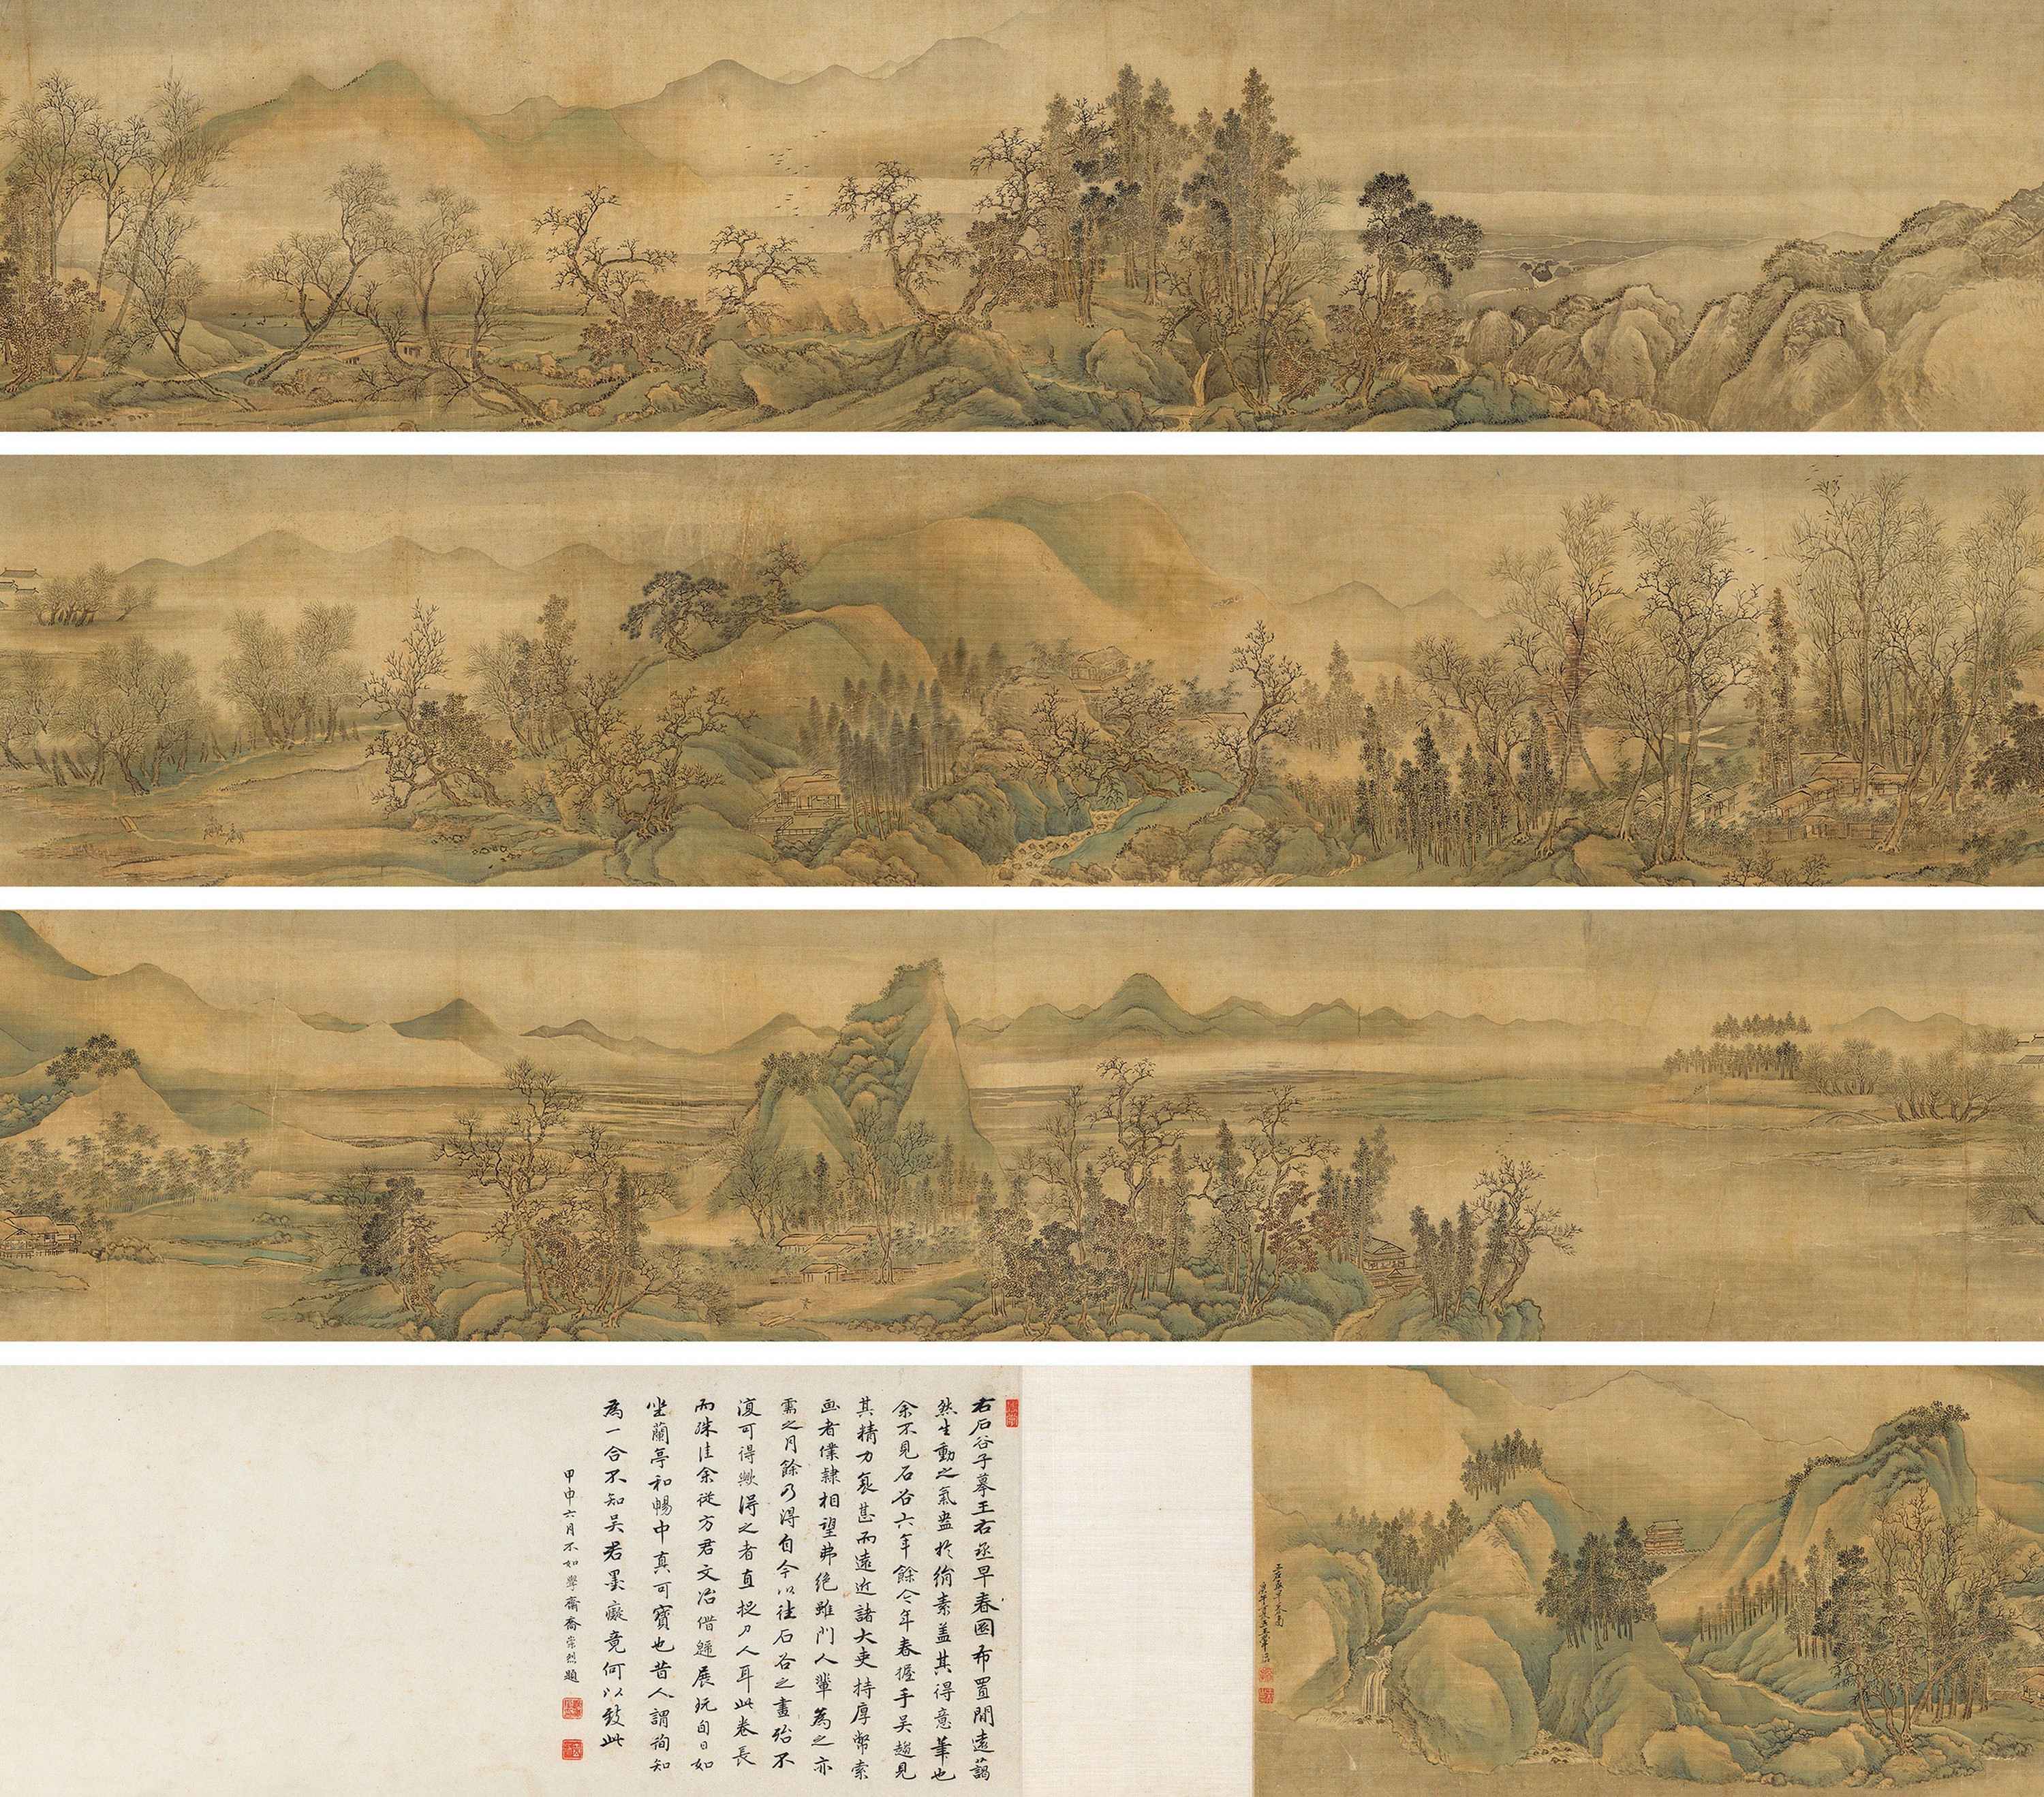 右石谷子摹王右丞早春圖布置閒遠藹
然生動之氣盎於絹素蓋其得意筆也
余不見石谷六年餘今年春握手吳趨見
其精力衰甚而遠近諸大吏持厚幣索
画者僕隸相望弗絕雖門人輩為之亦
需之月餘乃得自今以往石谷之畫殆不
復可得歟得之者直捉刀人耳此卷長
而殊佳余從方君文冶借觀展玩旬日如
坐蘭亭和暢中真可寶也昔人謂詢知
為一合不知吳君墨癡竟何以致此
甲申六月不如學齋喬崇烈題